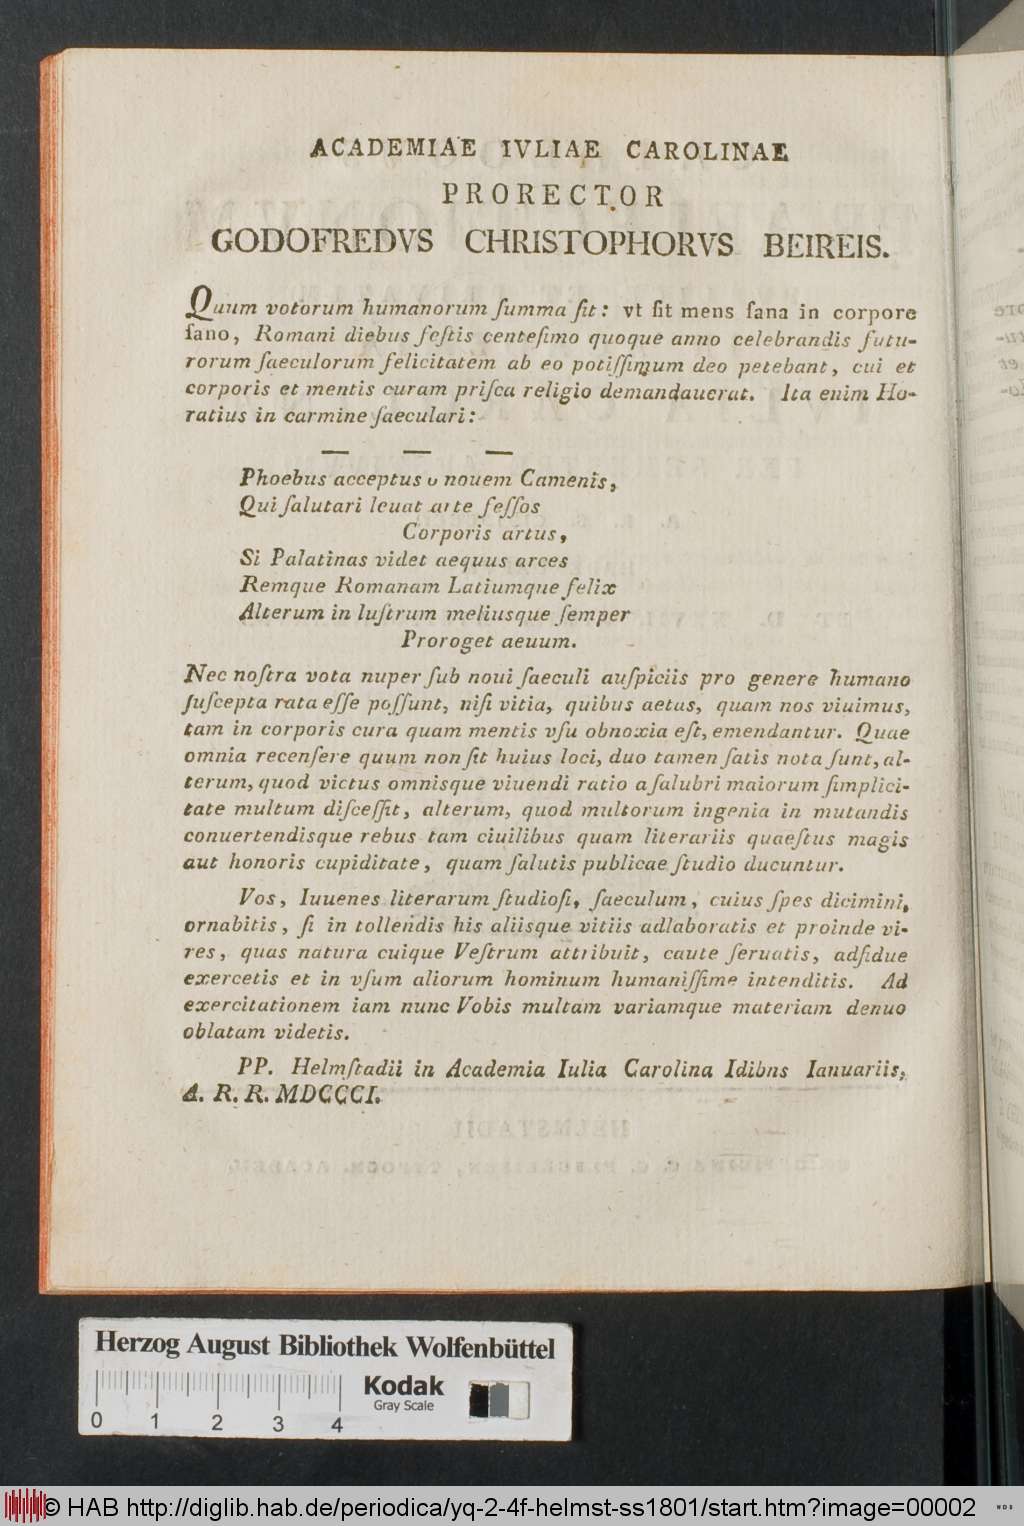 ACADEMIAE IVLIAE CAROLINAE
PRORECTOR
GODOFREDVS CHRISTOPHORVS BEIREIS.
Quum votorum humanorum ſumma ſit: vt ſit mens ſana in corpore
ſano, Romani diebus feſtis centeſimo quoque anno celebrandis futu-
rorum ſaeculorum felicitatem ab eo potiſſimum deo petebant, cui et
corporis et mentis curam priſca religio demandauerat. Ita enim Ho-
ratius in carmine ſaeculari:
— — —
Phoebus acceptus υ nouem Camenis,
Qui ſalutari leuat arte feſſos
Corporis artus,
Si Palatinas videt aequus arces
Remque Romanam Latiumque felix
Alterum in luſtrum meliusque ſemper
Proroget aeuum.
Nec noſtra vota nuper ſub noui ſaeculi auſpiciis pro genere humano
ſuſcepta rata eſſe poſſunt, niſi vitia, quibus aetas, quam nos viuimus,
tam in corporis cura quam mentis vſu obnoxia eſt, emendantur. Quae
omnia recenſere quum non ſit huius loci, duo tamen ſatis nota ſunt, al-
terum, quod victus omnisque viuendi ratio a ſalubri maiorum ſimplici-
tate multum diſceſſit, alterum, quod multorum ingenia in mutandis
conuertendisque rebus tam ciuilibus quam literariis quaeſtus magis
aut honoris cupiditate, quam ſalutis publicae ſtudio ducuntur.
Vos, Iuuenes literarum ſtudioſi, ſaeculum, cuius ſpes dicimini,
ornabitis, ſi in tollendis his aliisque vitiis adlaboratis et proinde vi-
res, quas natura cuique Veſtrum attribuit, caute ſeruatis, adſidue
exercetis et in vſum aliorum hominum humaniſſime intenditis. Ad
exercitationem iam nunc Vobis multam variamque materiam denuo
oblatam videtis.
PP. Helmſtadii in Academia Iulia Carolina Idibns Ianuariis,
A. R. R. MDCCCI.
Herzog August Bibliothek Wolfenbüttel
Kodak
Gray Scale
0 1 2 3 4
© HAB http://diglib.hab.de/periodica/yq-2-4f-helmst-ss1801/start.htm?image=00002